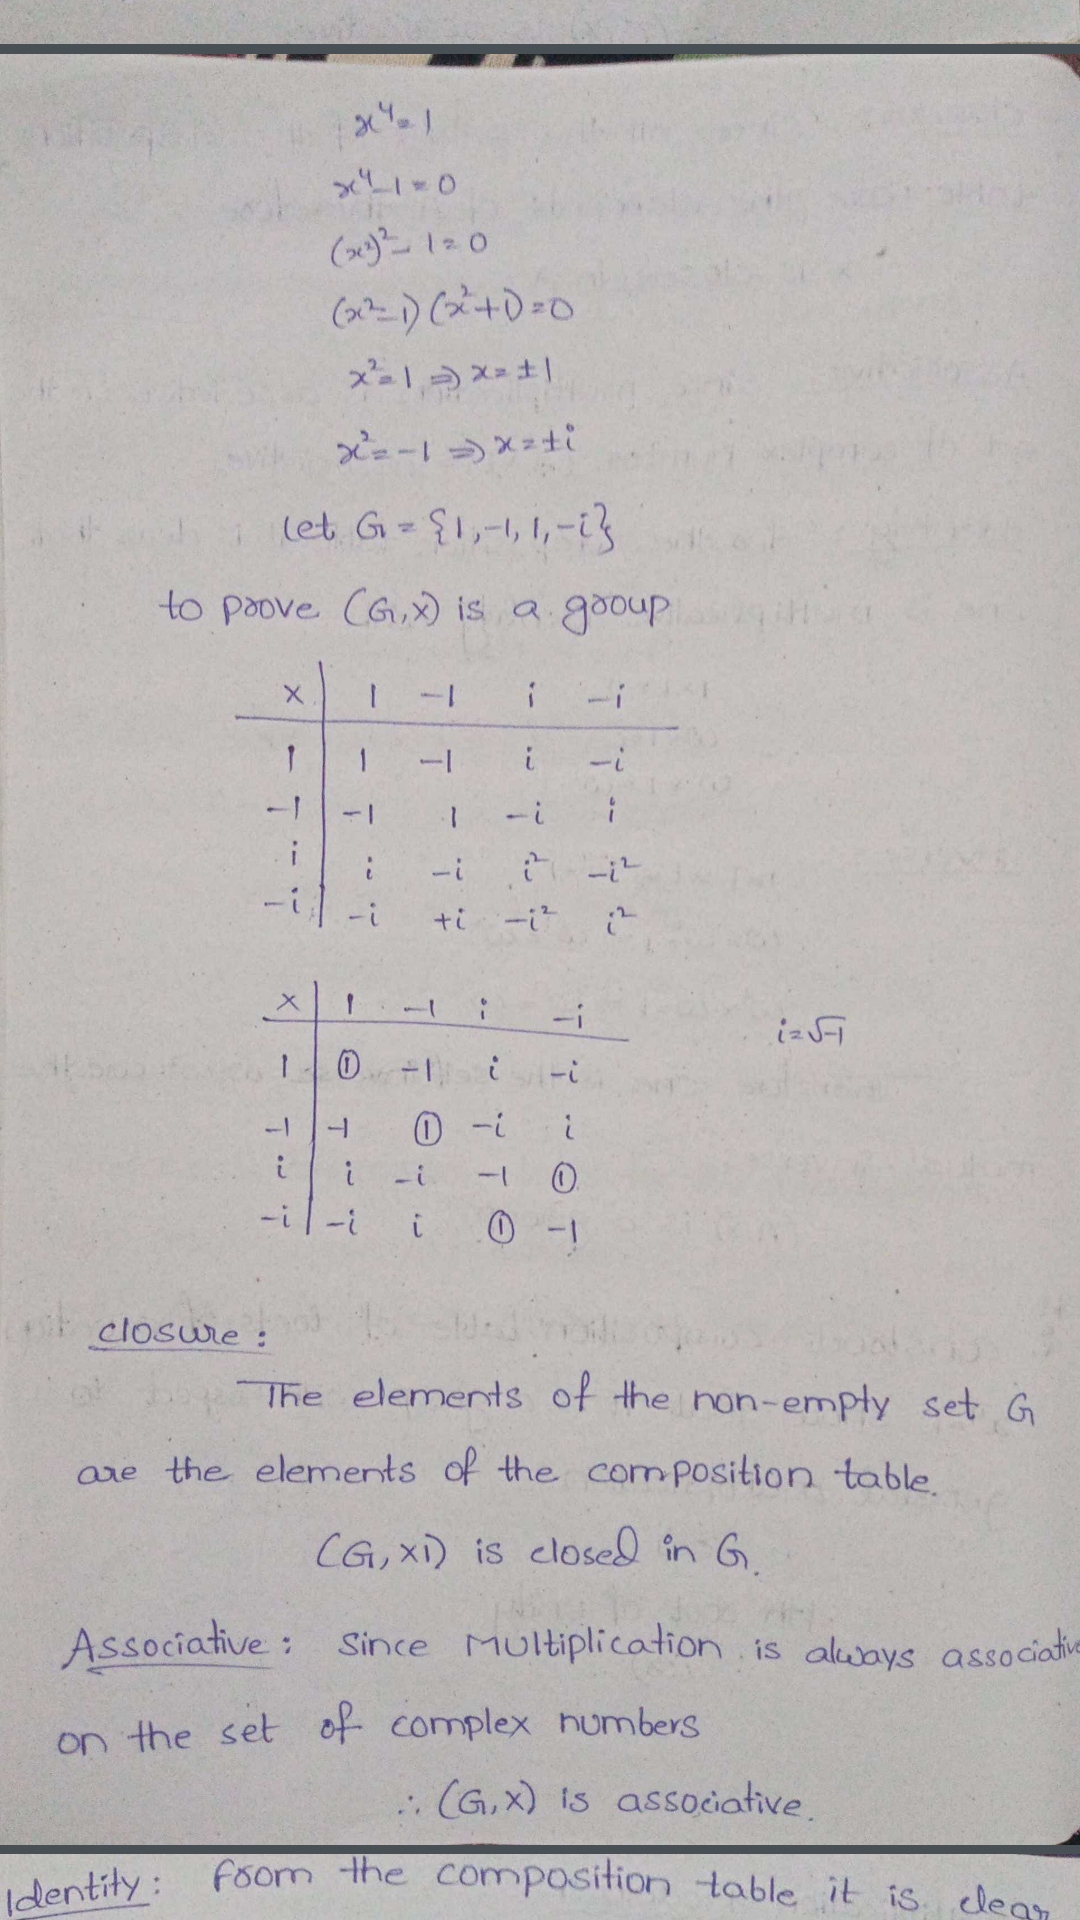 x⁴=1
x⁴-1=0
(x²)²-1=0
(x²-1)(x²+1)=0
x²=1⇒x=±1
x²=-1⇒x=±i
let G={1,-1,1,-i}
to prove (G,×) is a group
× 1 -1 i -i
1 1 -1 i -i
-1 -1 1 -i i
i i -i i² -i²
-i -i +i -i² i²
× 1 -1 i -i
i=√-1
1 ① -1 i -i
-1 -1 ① -i i
i i -i -1 ①
-i -i i ① -1
closure:
The elements of the non-empty set G
are the elements of the composition table.
(G,×1) is closed in G.
Associative: since Multiplication is always associative
on the set of complex numbers
∴ (G,×) is associative.
Identity: from the composition table it is clear